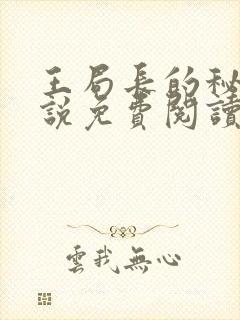 王局長的秘
說免費閱讀
雲我無心